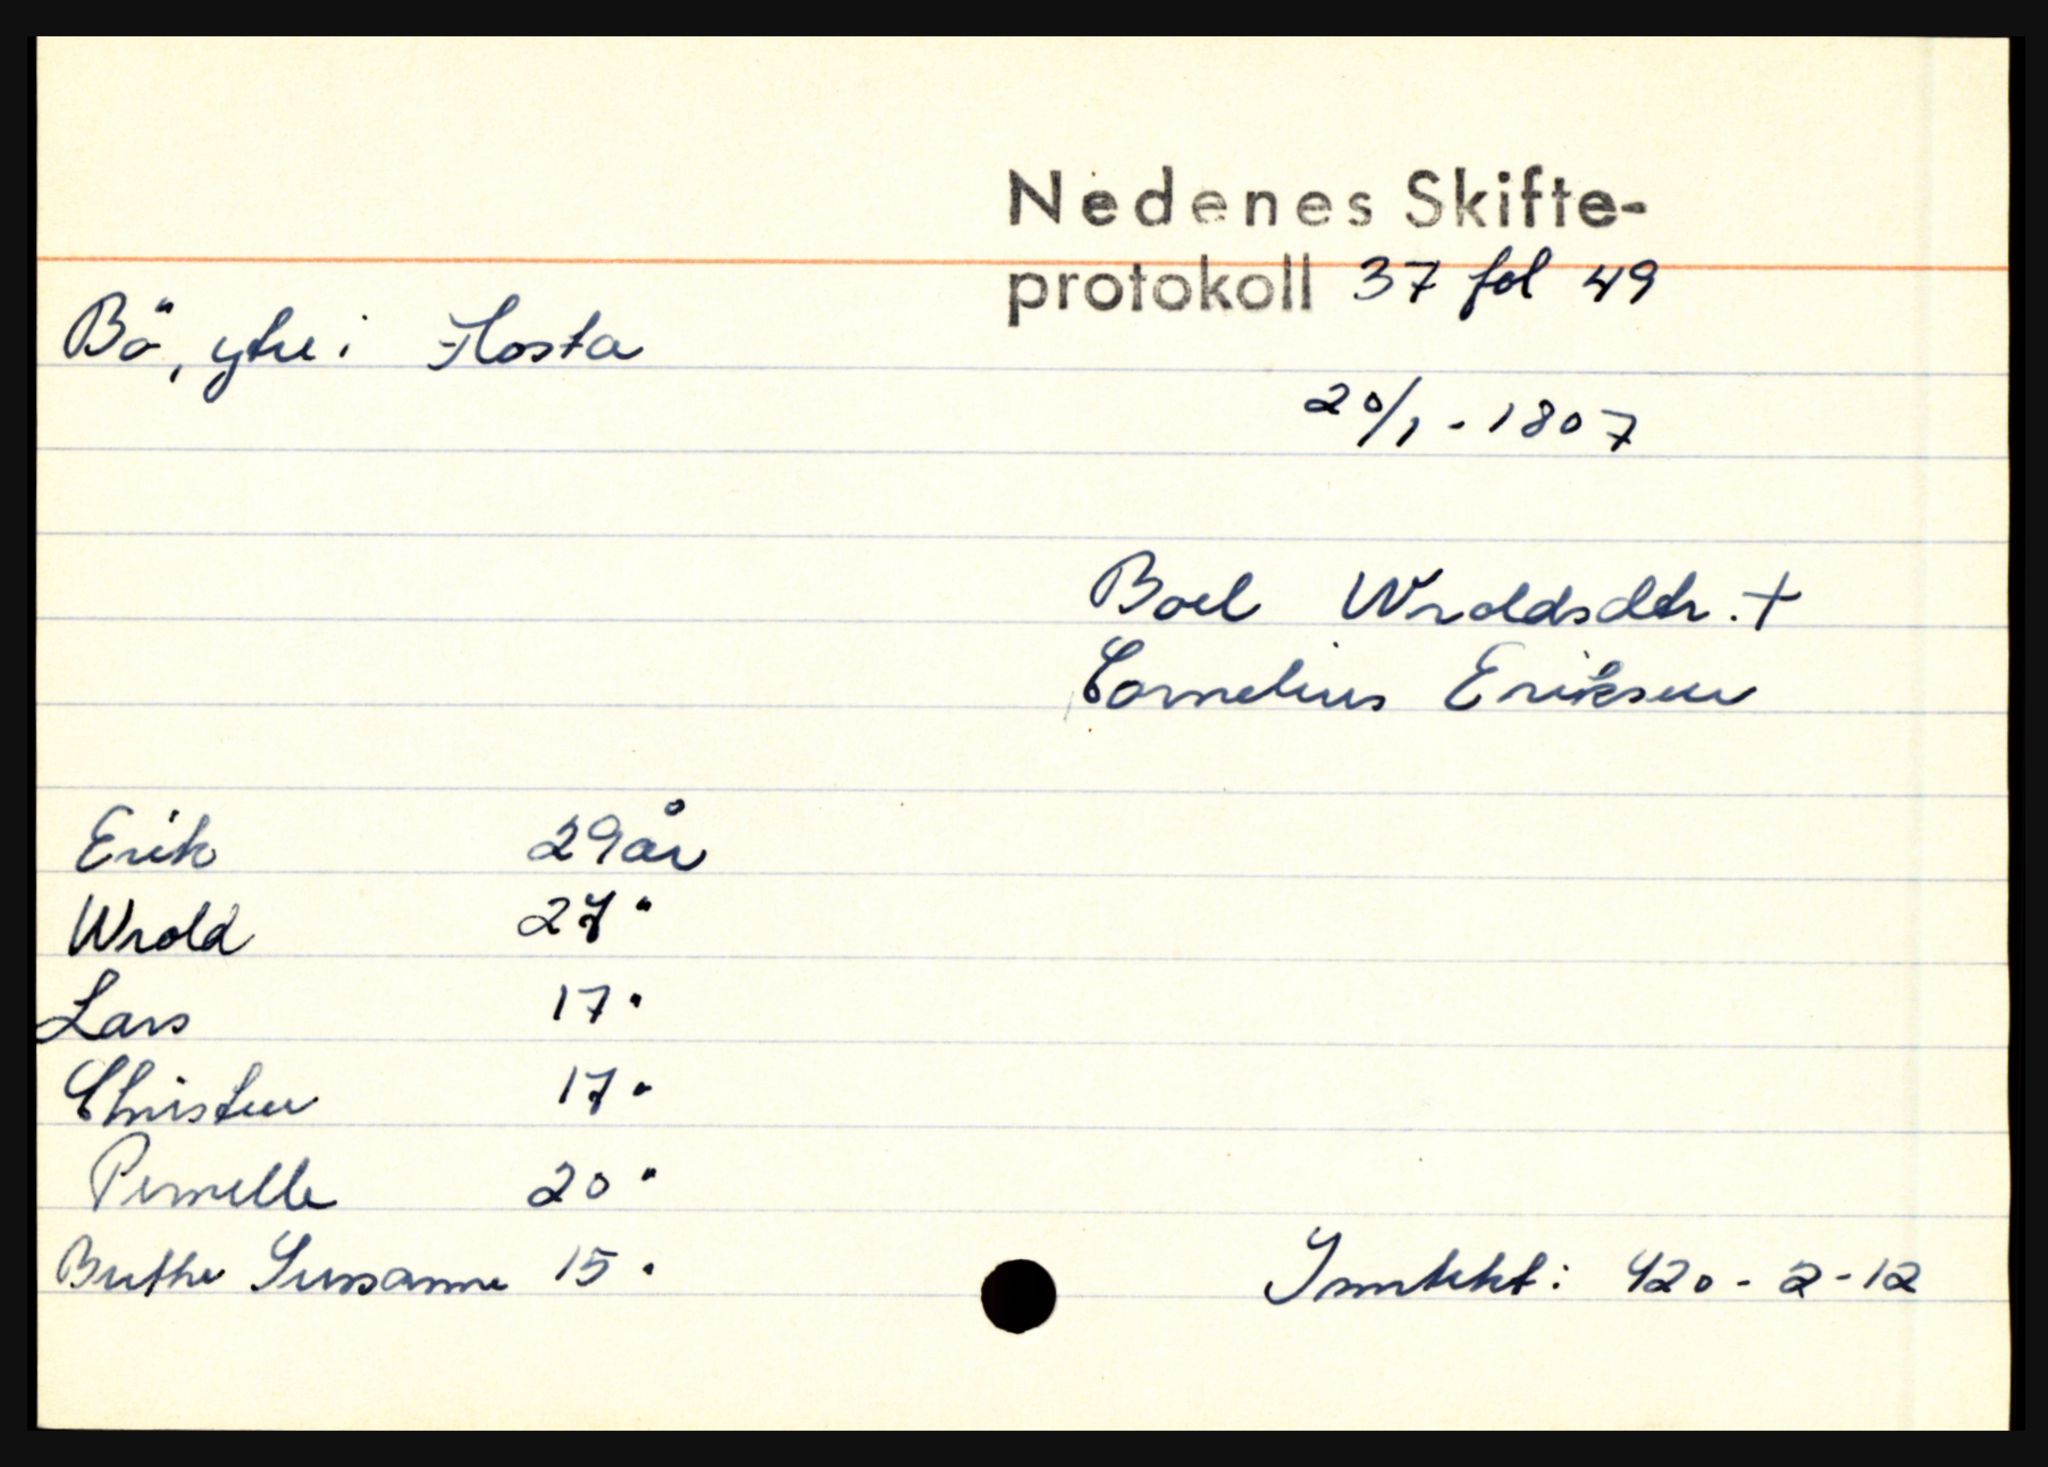 Nedenes Skifte-
protokoll 37 fol 49
Bö, ytre i Flosta
20/1 - 1807
Boel Wroldsdtr. +
Cornelius Eriksen
Erik 29 år
Wrold 27 "
Lars 17 "
Christen 17 "
Pernelle 20 "
Birthe Sussanne 15 "
Inntekt: 420 - 2 - 12